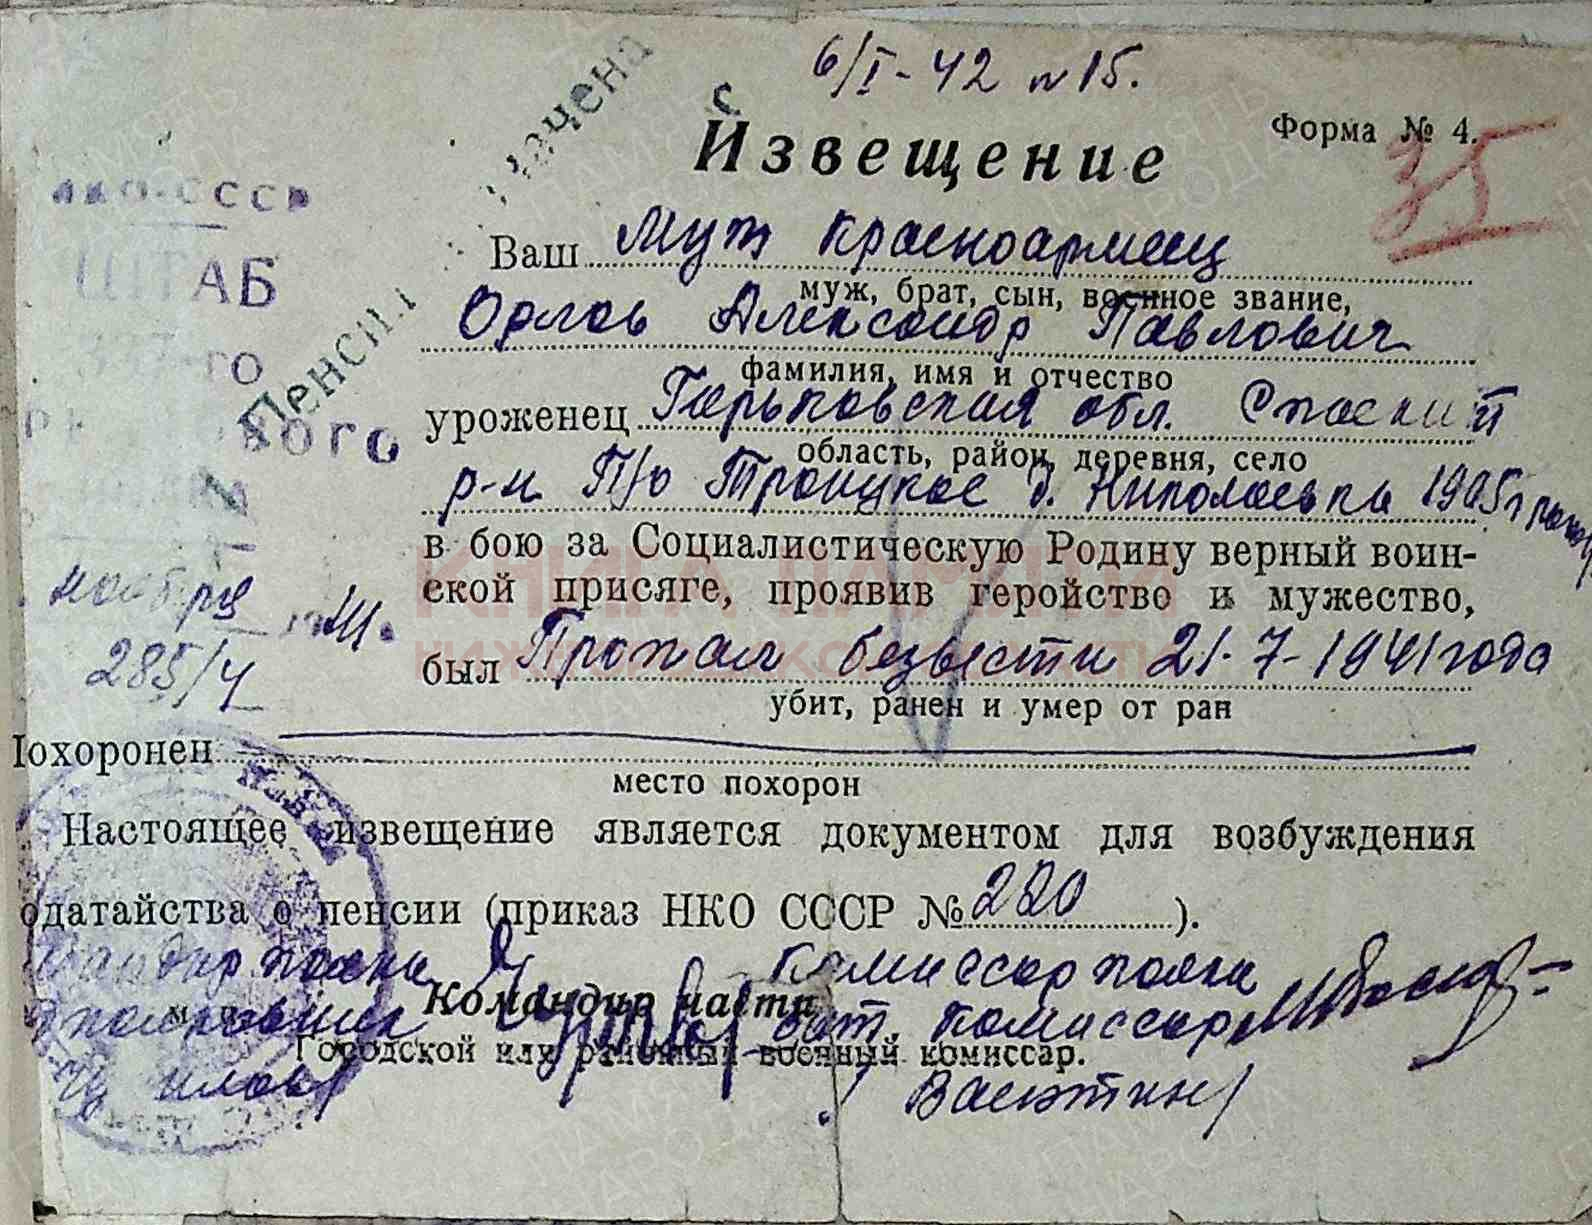 6/I-42 №15.
Извещение
Форма № 4.
35
НКО-СССР
ШТАБ
Пенсия
с
Ваш Муж красноармеец
муж, брат, сын, военное звание,
Орлов Александр Павлович
фамилия, имя и отчество
уроженец Горьковская обл. Спаский
область, район, деревня, село
р-н П/о Троицкое д. Николаевка 1905г рожд
в бою за Социалистическую Родину верный воин-
ской присяге, проявив геройство и мужество,
ноября
285/4
был Пропал безвести 21-7-1941 года
убит, ранен и умер от ран
Похоронен
место похорон
Настоящее извещение является документом для возбуждения
одатайства о пенсии (приказ НКО СССР № 220 ).
Командир полка Комиссар полка
Командир части
бат. Комиссар
Городской или районный военный комиссар.
КНИГА ПАМЯТИ
НИЖЕГОРОДСКОЙ ОБЛАСТИ